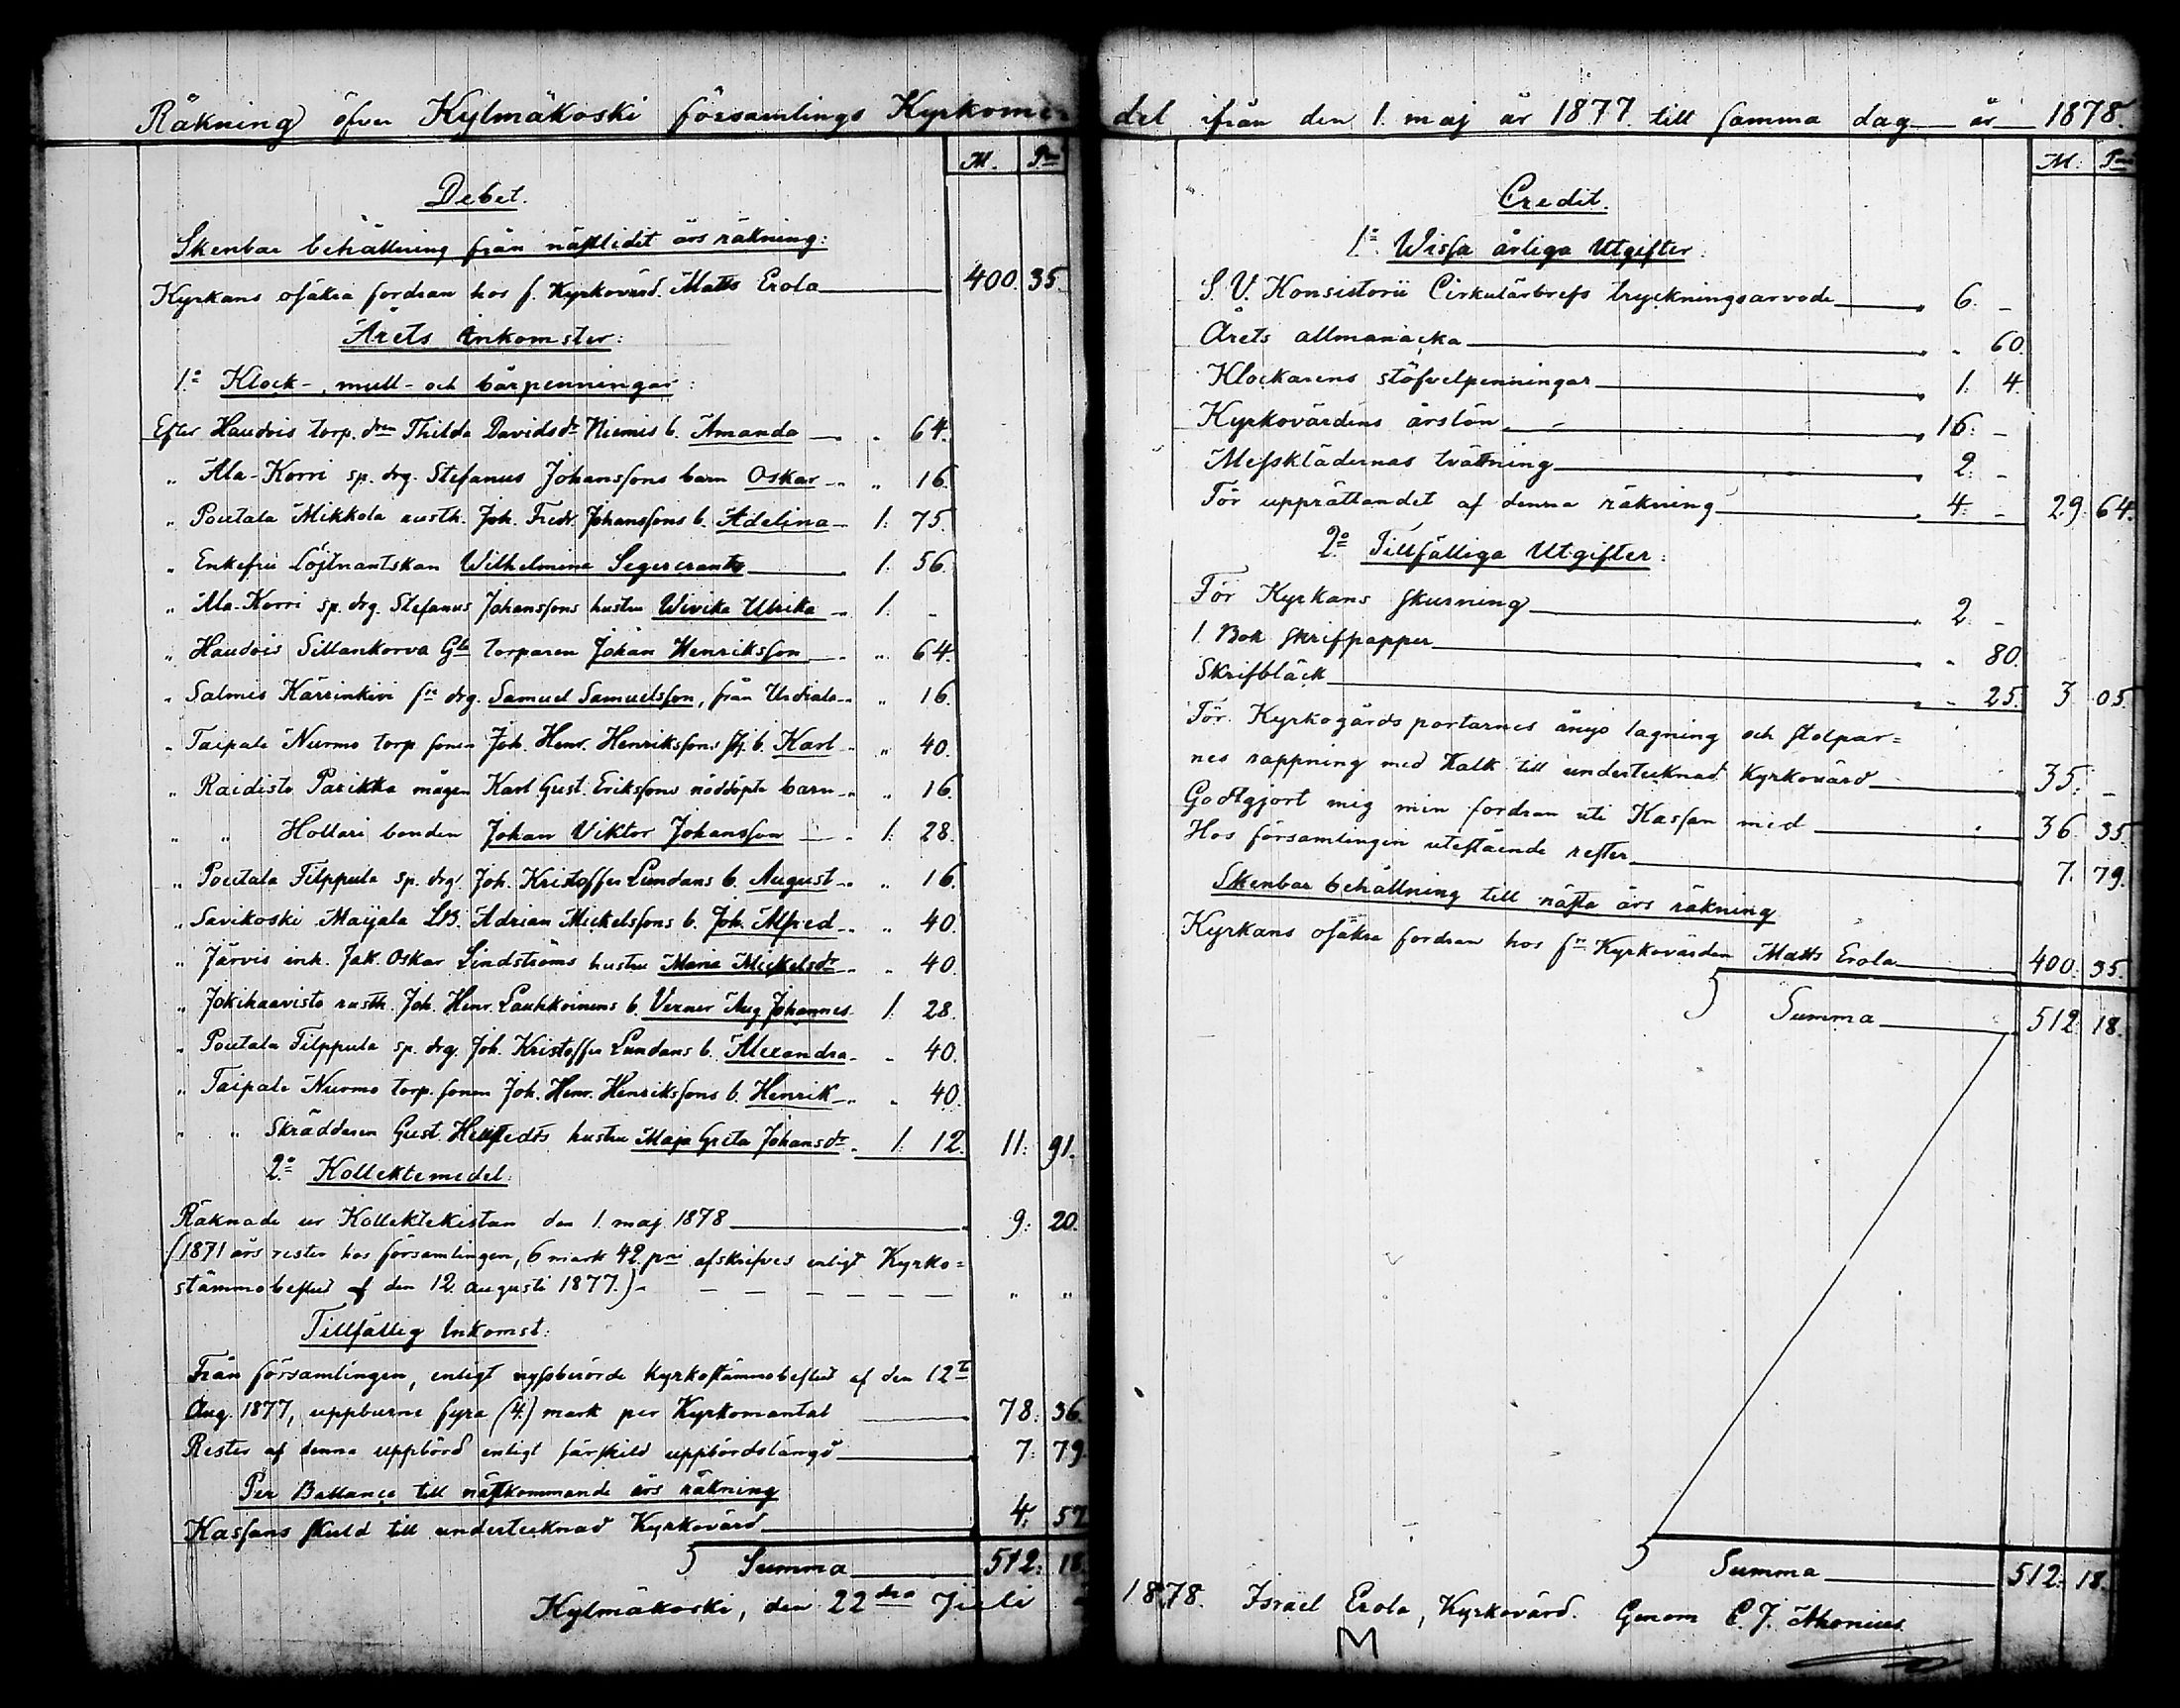 Räkning öfver Kylmäkoski församlings Kyrkomedel ifrån den 1. maj år 1877 till samma dag år 1878.
M. Pni
Debet.
Skenbar behållning från nästlidet års räkning:
Kyrkans osäkra fordran hos f. Kyrkovärd. Matts Erola 400. 35.
Årets Inkomster:
1:o Klock-, mull- och bårpenningar:
Efter Haudois torp. dren Thilda Davidsdr Niemis b. Amanda " 64.
" Ala-Korri sp. drg. Stefanus Johanssons barn Oskar " 16.
" Poutala Mikkola rusth. Joh. Fredr. Johanssons b. Adelina 1: 75.
" Enkefru Löjtnantskan Wilhelmina Segercrantz 1: 56.
" Ala-Korri sp. drg. Stefanus Johanssons hustru Wivika Ulrika 1: -
" Haudois Sillankorva Gla torparen Johan Henriksson " 64.
" Salmis Kärrinkivi fre drg. Samuel Samuelsson, från Urdiala " 16.
" Taipale Nurmo torp. sonen Joh. Henr. Henrikssons b. Karl " 40.
" Raidisto Parikka mågen Karl Gust. Erikssons nöddöpta barn " 16.
" " Hollari bonden Johan Viktor Johansson 1: 28.
" Poutala Filppula sp. drg. Joh. Kristoffer Lundans b. August " 16.
" Savikoski Maijala LB. Adrian Mickelssons b. Joh. Alfred " 40.
" Järvis inh. Jak. Oskar Lindströms hustru Maria Mickelsdr " 40.
" Jokihaavisto rusth. Joh. Henr. Lauhkoinens b. Verner Aug Johannes 1: 28.
" Poutala Filppula sp. drg. Joh. Kristoffer Lundans b. Alexandra " 40.
" Taipale Nurmo torp. sonen Joh. Henr. Henrikssons b. Henrik " 40.
" " Skräddaren Gust. hustru Maja Greta Johansdr 1: 12. 11: 91.
2:o Kollektemedel:
Räknade ur Kollektekistan den 1. maj 1878 9: 20.
(1871 års rester hos församlingen, 6 mark 42 pni afskrifves enligt Kyrko=
stämmobeslut af den 12. augusti 1877.) " "
Tillfällig Inkomst:
Från församlingen, enligt nyssberörde Kyrkostämmobeslut af den 12te
Aug. 1877, uppburne fyra (4:) mark per Kyrkomantal 78: 36.
Rester af denna uppbörd enligt särskild uppbördslängd 7: 79.
Per Ballance till nästkommande års räkning
Kassans skuld till undertecknad Kyrkovärd 4: 57
Summa 512: 18.
Kylmäkoski, den 22dra Juli
M. Pni
Credit.
1:o Wissa årliga Utgifter:
S. V. Konsistorii Cirkulärbrefs tryckningsarvode 6: -
Årets allmanacka " 60.
Klockarens stöfvelpenningar 1: 4.
Kyrkovärdens årslön 16: -
Messklädernas tvättning 2: -
För upprättandet af denna räkning 4: - 29: 64.
2:o Tillfälliga Utgifter:
För Kyrkans skurning 2 -
1 Bok skrifpapper " 80.
Skrifbläck " 25. 3 05.
För Kyrkogårdsportarnes ånyo lagning och stolpar=
nes rappning med Kalk till undertecknad Kyrkovärd 35: -
Godtgjort mig min fordran uti Kassan med 36. 35.
Hos församlingen utestående rester 7. 79.
Skenbar behållning till nästa års räkning
Kyrkans osäkra fordran hos fre Kyrkovärden Matts Erola 400: 35.
Summa 512: 18.
Summa 512: 18.
1878. Israel Erola, Kyrkovärd. Genom C. J.
M